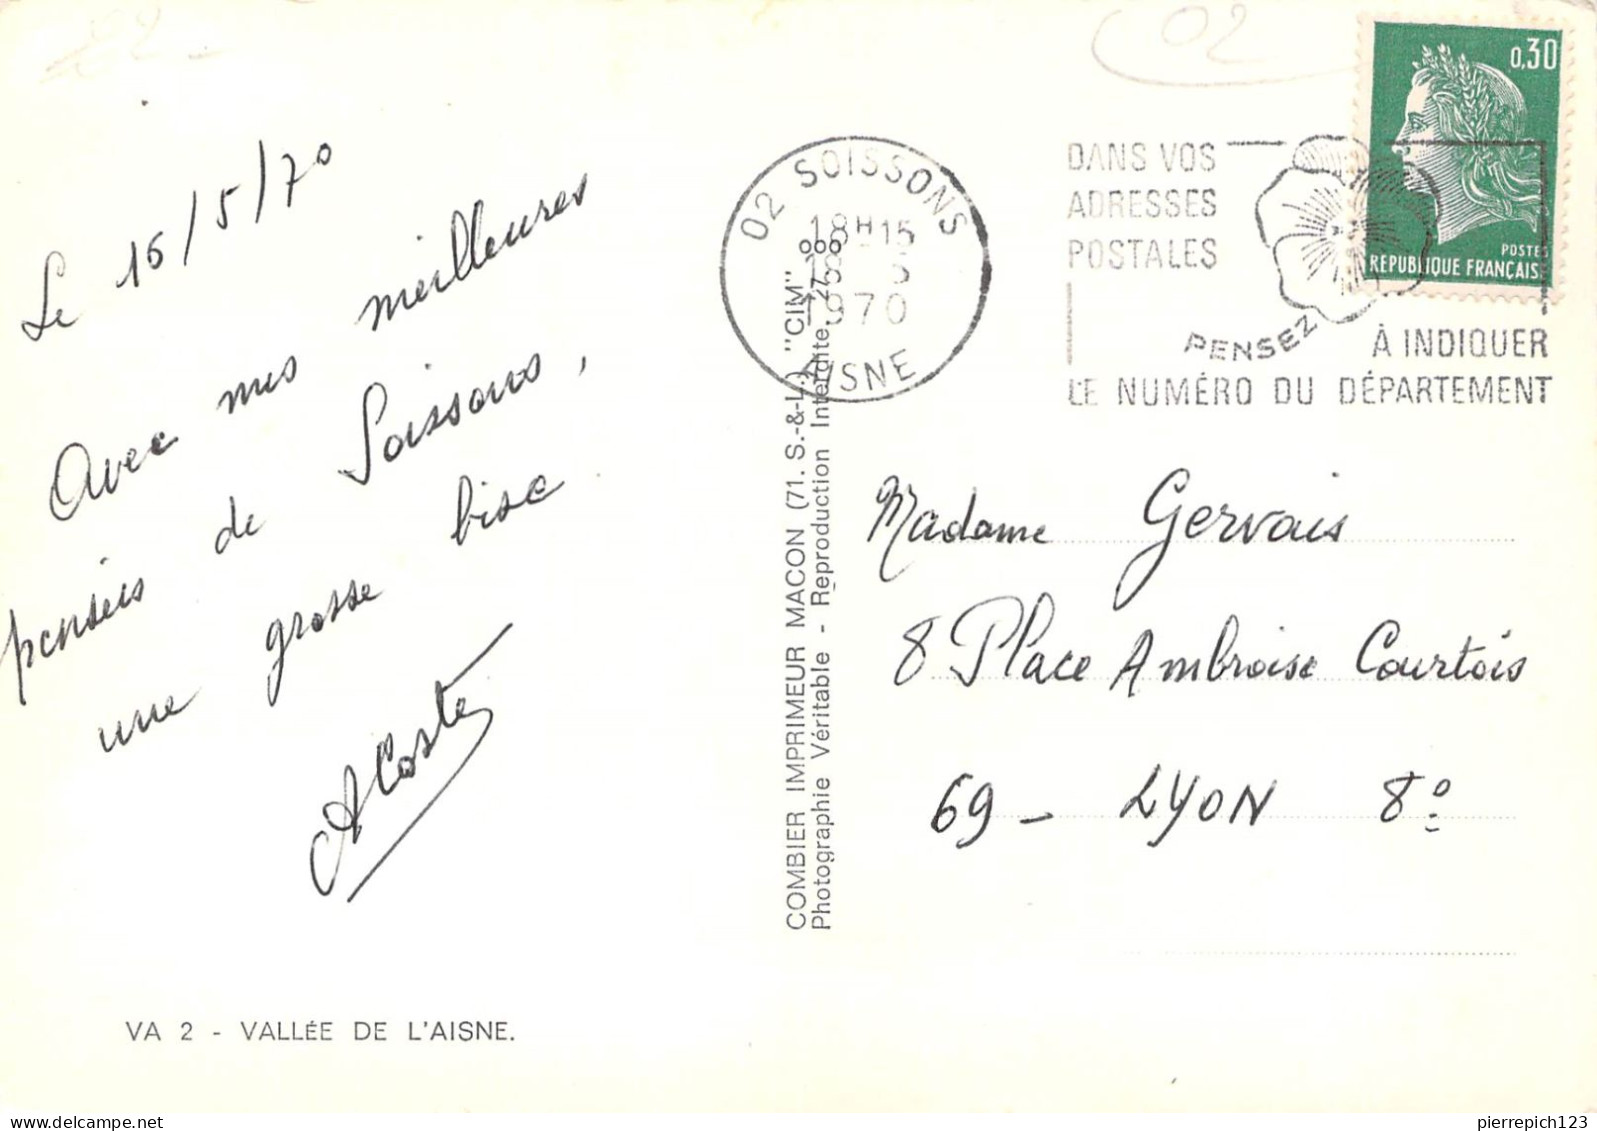 02
Le 16/5/70
Avec mes meilleures
pensées de Soissons,
une grosse bise.
ACoste
VA 2 - VALLÉE DE L'AISNE.
COMBIER IMPRIMEUR MACON (71. S.-&-L.) "CIM"
Photographie Véritable - Reproduction Interdite
02 SOISSONS
18H15
1970
AISNE
DANS VOS
ADRESSES
POSTALES
PENSEZ
À INDIQUER
LE NUMÉRO DU DÉPARTEMENT
0,30
POSTES
RÉPUBLIQUE FRANÇAISE
Madame Gervais
8 Place Ambroise Courtois
69 - LYON 8º
pierrepich123